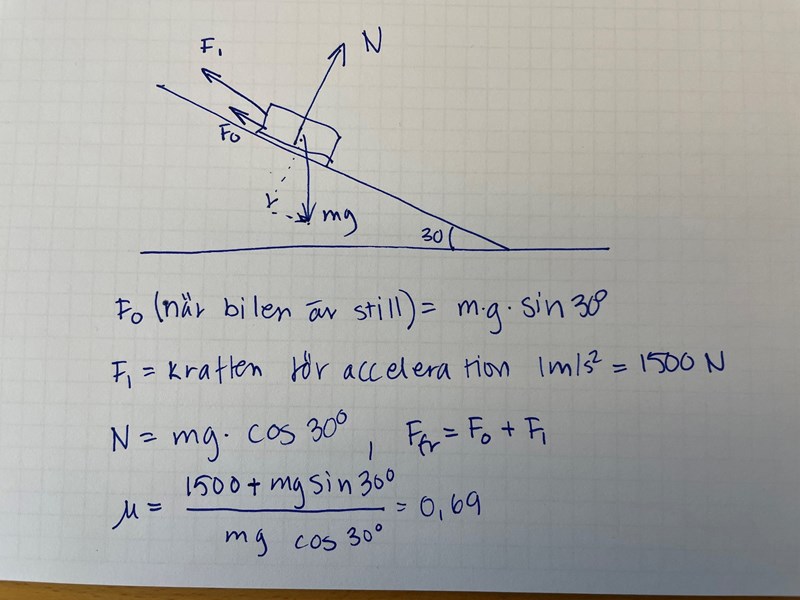 F₁
N
F₀
mg
30
F₀ (när bilen är still) = m·g·sin 30°
F₁ = kraften för acceleration 1m/s² = 1500 N
N = mg· cos 30° , Ffr = F₀ + F₁
μ = (1500 + mg sin 30°) / (mg cos 30°) = 0,69